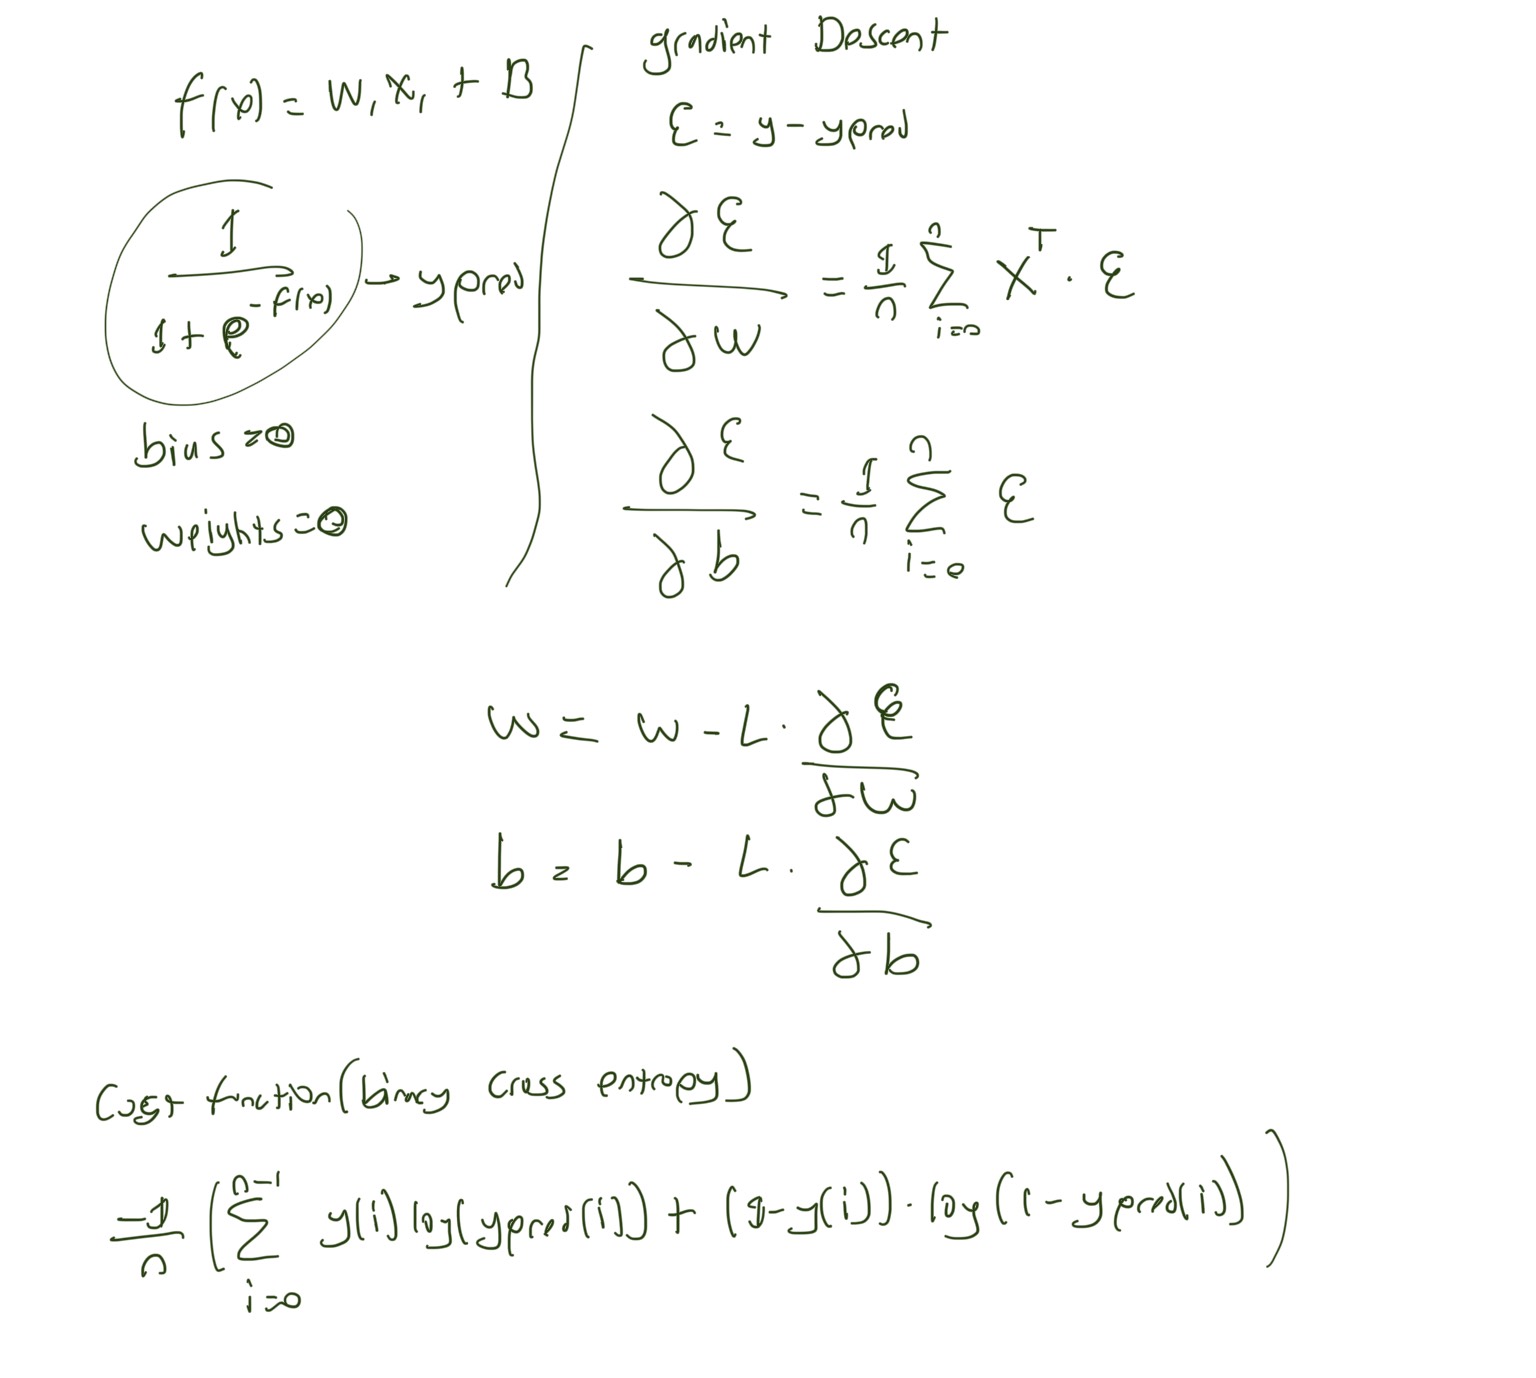 f(x) = W₁X₁ + B
1
1 + e^-f(x) → ypred
bias = 0
weights = 0
gradient Descent
ε = y - ypred
∂ε/∂w = 1/n ∑ i=0 n X^T · ε
∂ε/∂b = 1/n ∑ i=0 n ε
w = w - L · ∂ε/∂w
b = b - L · ∂ε/∂b
Cost function (binary cross entropy)
-1/n ( ∑ i=0 n-1 y(i) log(ypred(i)) + (1-y(i)) · log(1-ypred(i)) )